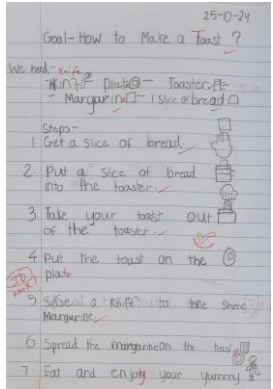 25-10-24
Goal-How to Make a Toast ?
We need- Knife
Plate - Toaster
- Margarin - 1 Slice of bread
Steps-
1. Get a slice of bread.
2. Put a slice of bread
into the toaster.
3. Take your toast out
of the toaster.
4 Put the toast on the
plate
5 a knife to take some
Margarine.
6. Spread the margarine on the toast
7. Eat and enjoy your yummy